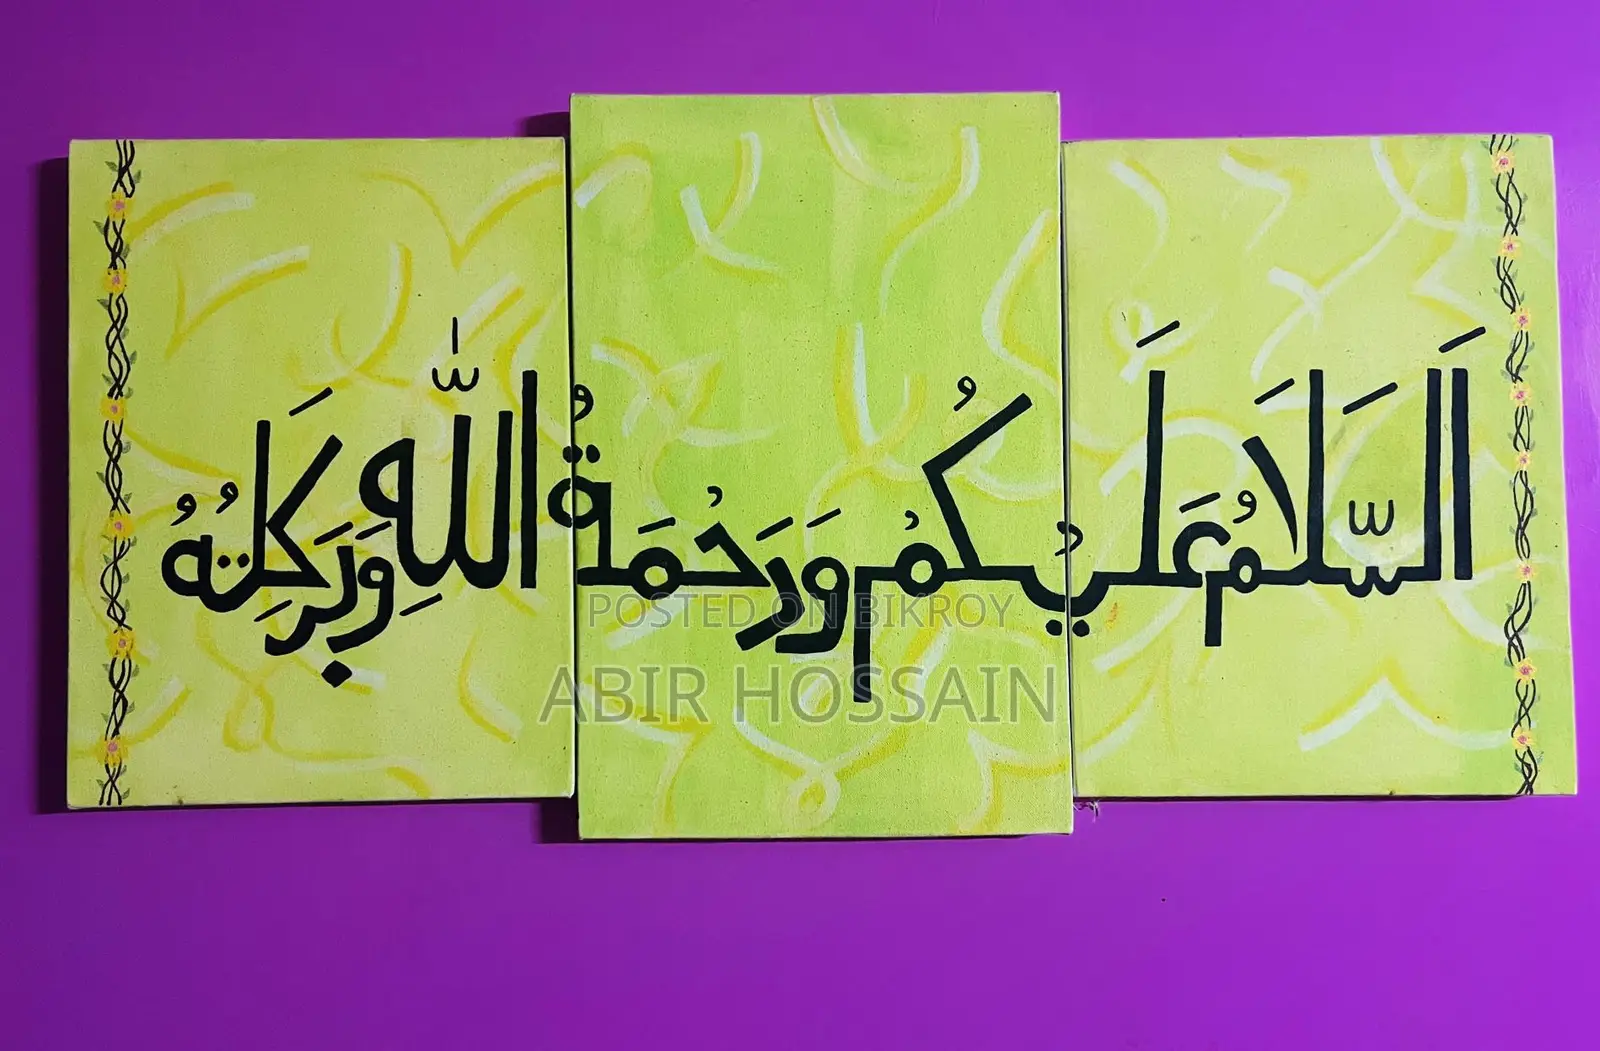 اَلسَّلَامُ عَلَيْكُمْ وَرَحْمَةُ اللّٰهِ وَبَرَكَتُهُ
POSTED ON BIKROY
ABIR HOSSAIN